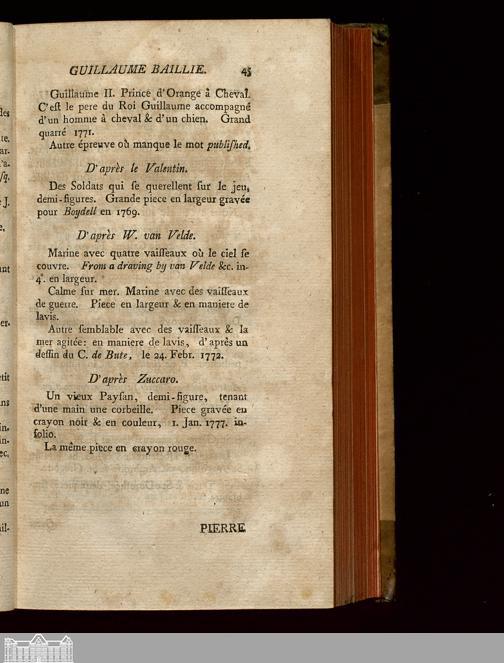 GUILLAUME BAILLIE. 45
Guillaume II. Prince d'Orange à Cheval.
C'eſt le pere du Roi Guillaume accompagné
d'un homme à cheval & d'un chien. Grand
quarré 1771.
Autre épreuve où manque le mot publiſhed.
D'après le Valentin.
Des Soldats qui ſe querellent ſur le jeu,
demi-figures. Grande piece en largeur gravée
pour Boydell en 1769.
D'après W. van Velde.
Marine avec quatre vaiſſeaux où le ciel ſe
couvre. From a draving by van Velde &c. in-
4°. en largeur.
Calme ſur mer. Marine avec des vaiſſeaux
de guerre. Piece en largeur & en maniere de
lavis.
Autre ſemblable avec des vaiſſeaux & la
mer agitée: en maniere de lavis, d'après un
deſſin du C. de Bute, le 24. Febr. 1772.
D'après Zuccaro.
Un vieux Payſan, demi-figure, tenant
d'une main une corbeille. Piece gravée en
crayon noir & en couleur, 1. Jan. 1777. in-
folio.
La même piece en crayon rouge.
PIERRE